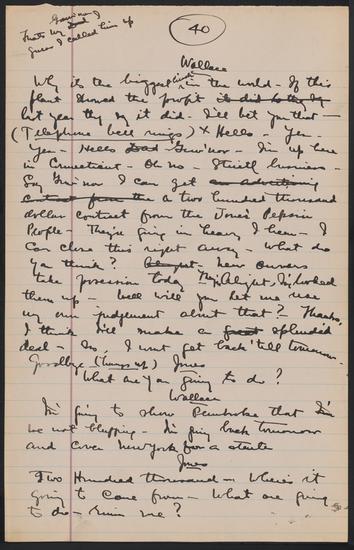 Guvnor
That's my Dad
Guess I called him up
40
Wallace
Why its the biggest kind in the world - If this
plant showed the profit it did to thy Gov
last year thy say it did - I'll bet you that -
(Telephone bell rings) X Hello - Yes -
Yes - Hello Dad Guv'nor - I'm up here
in Connecticut - Oh no - Strictly business -
Say Guv'nor I can get an advertising
contract from the a two hundred thousand
dollar contract from the Jones Pepsin
People - They're going in heavy I hear - I
can close this right away - What do
you think? Alright - new owners
take possession today - They're alright, I've looked
them up - Well will you let me use
my own judgement about that? - Thanks,
I think I'll make a great splendid
deal - No, I wont get back 'till tomorrow -
Goodbye - (hangs up) Jones
What are you going to do?
Wallace
I'm going to show Pembroke that I'm
we not bluffing - I'm going back tomorrow
and cover New York for a
Jones
Two Hundred thousand - Where's it
going to come from - What are you going
to do - ruin me?